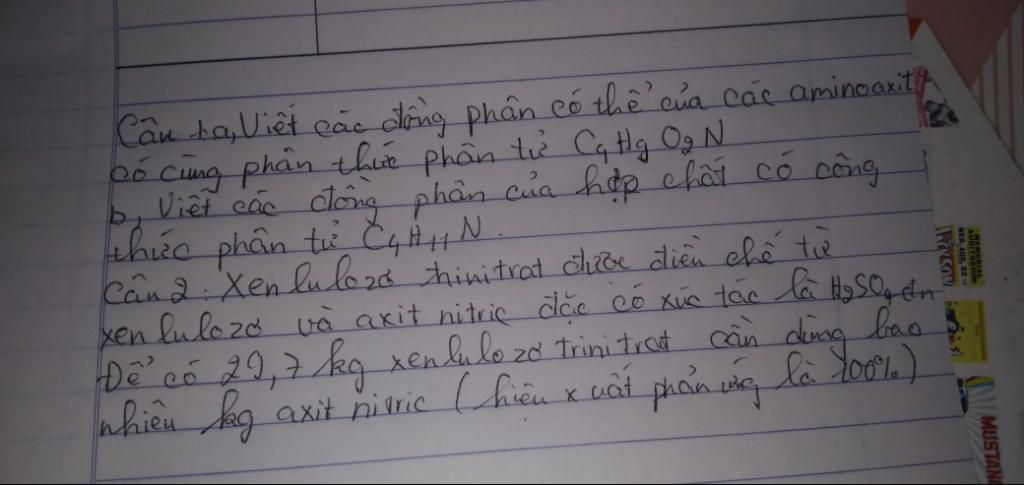 Câu 1a, Viết các đồng phân có thể của các aminoaxit
có cùng phân thức phân tử C4H9O2N
b, Viết các đồng phân của hợp chất có công
thức phân tử C4H11N.
Câu 2: Xenlulozơ trinitrat được điều chế từ
xenlulozơ và axit nitric đặc có xúc tác là H2SO4 đn
Để có 29,7 kg xenlulozơ trinitrat cần dùng bao
nhiêu kg axit nitric (hiệu xuất phản ứng là 100%)
MEMORIAL
AUDITORIUM
WED. AUG. 22
MUSTAN